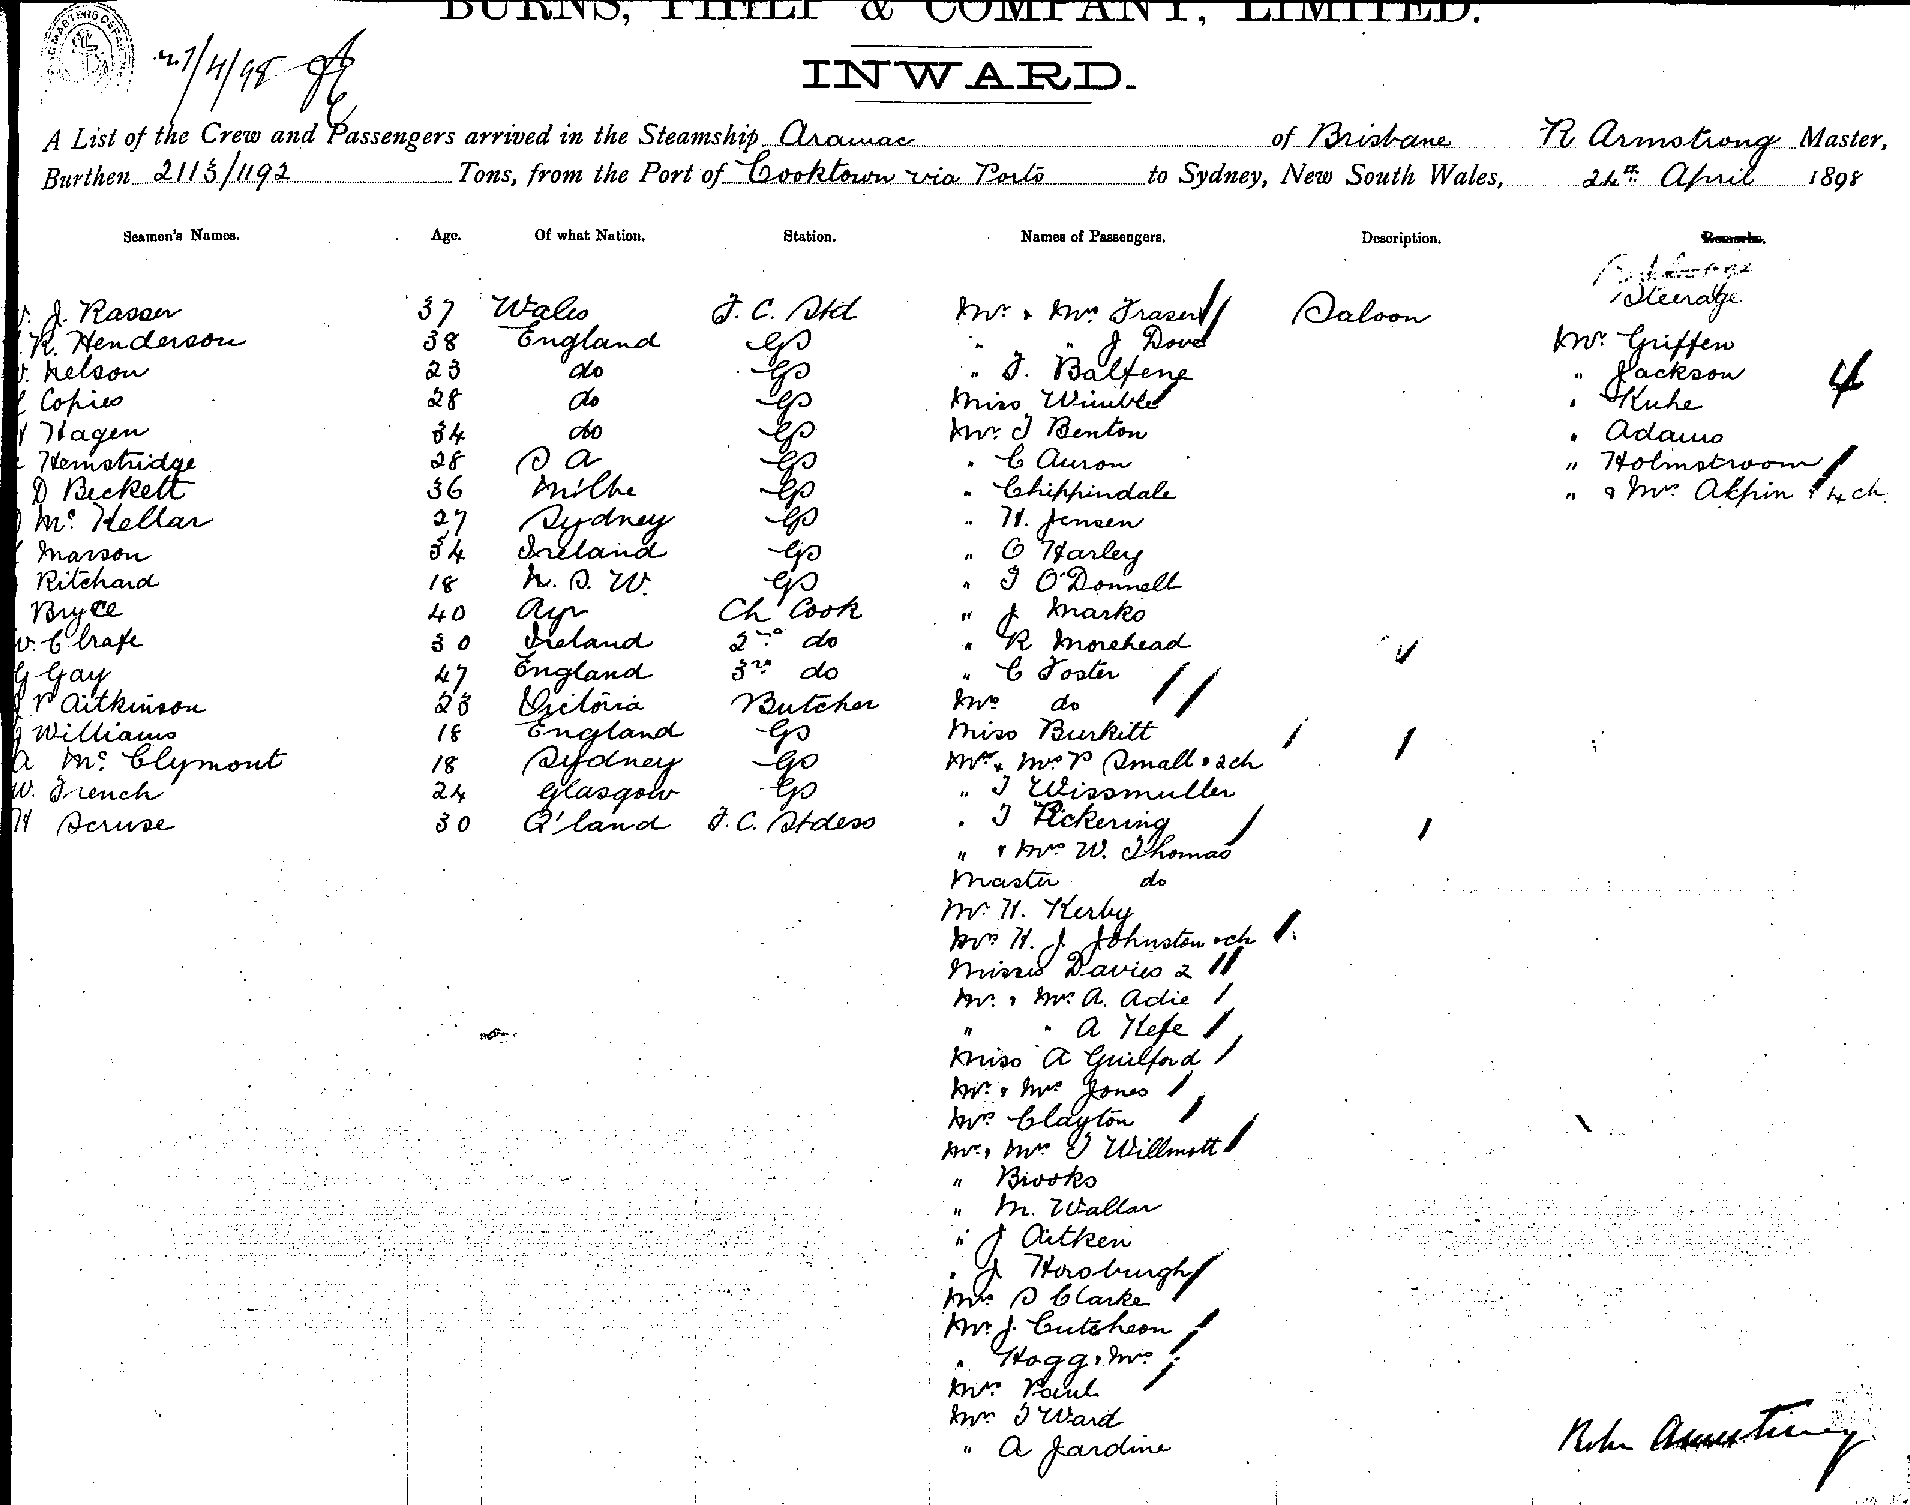 BURNS, PHILP & COMPANY, LIMITED.
INWARD.
27/4/98
A List of the Crew and Passengers arrived in the Steamship Aramac of Brisbane R Armstrong Master,
Burthen 2113/1192 Tons, from the Port of Cooktown via Ports to Sydney, New South Wales, 24th April 1898
Seamen's Names. Age. Of what Nation. Station. Names of Passengers. Description. Remarks.
Steerage
J. Rasser 37 Wales F. C. Std Mr & Mrs Fraser Saloon
R. Henderson 38 England GS " " J Dove Mr Griffen
Nelson 23 do GS " F. Balfene " Jackson 4
Copies 28 do GS Miss Wimble " Kuhe
Hagen 34 do GS Mr J Benton " Adams
Hemstridge 28 S A GS " C Auron " Holmstroom
D Beckett 36 Milbe GS " Chippindale " & Mrs Akpin & 4 ch
Mc Kellar 27 Sydney GS " H. Jensen
Marson 34 Ireland GS " O Harley
Ritchard 18 N. S. W. GS " J O'Donnell
Bryce 40 Ayr Ch Cook " J Marks
C Crafe 30 Ireland 2nd do " R Morehead
G Gay 47 England 3rd do " C Foster
Aitkinson 23 Victoria Butcher Mrs do
Williams 18 England GS Miss Burkitt
A Mc Clymont 18 Sydney GS Mr & Mrs P Small & 2ch
W. French 24 Glasgow GS " J Wissmuller
H Scruse 30 Q'land F. C. Stdess " J Pickering
" & Mrs W. Thomas
Master do
Mr H. Kerby
Mrs H. J Johnston & ch
Misses Davies 2
Mr & Mrs A. Adie
" " A Kefe
Miss A Guilford
Mr & Mrs Jones
Mrs Clayton
Mr & Mrs J Willmott
" Brooks
" M. Wallar
" J Aitken
" J Horsburgh
Mrs S Clarke
Mr J. Cutcheon
" Hogg & Mrs
Mrs Paul
Mr J Ward
" A Jardine
Robn Armstrong